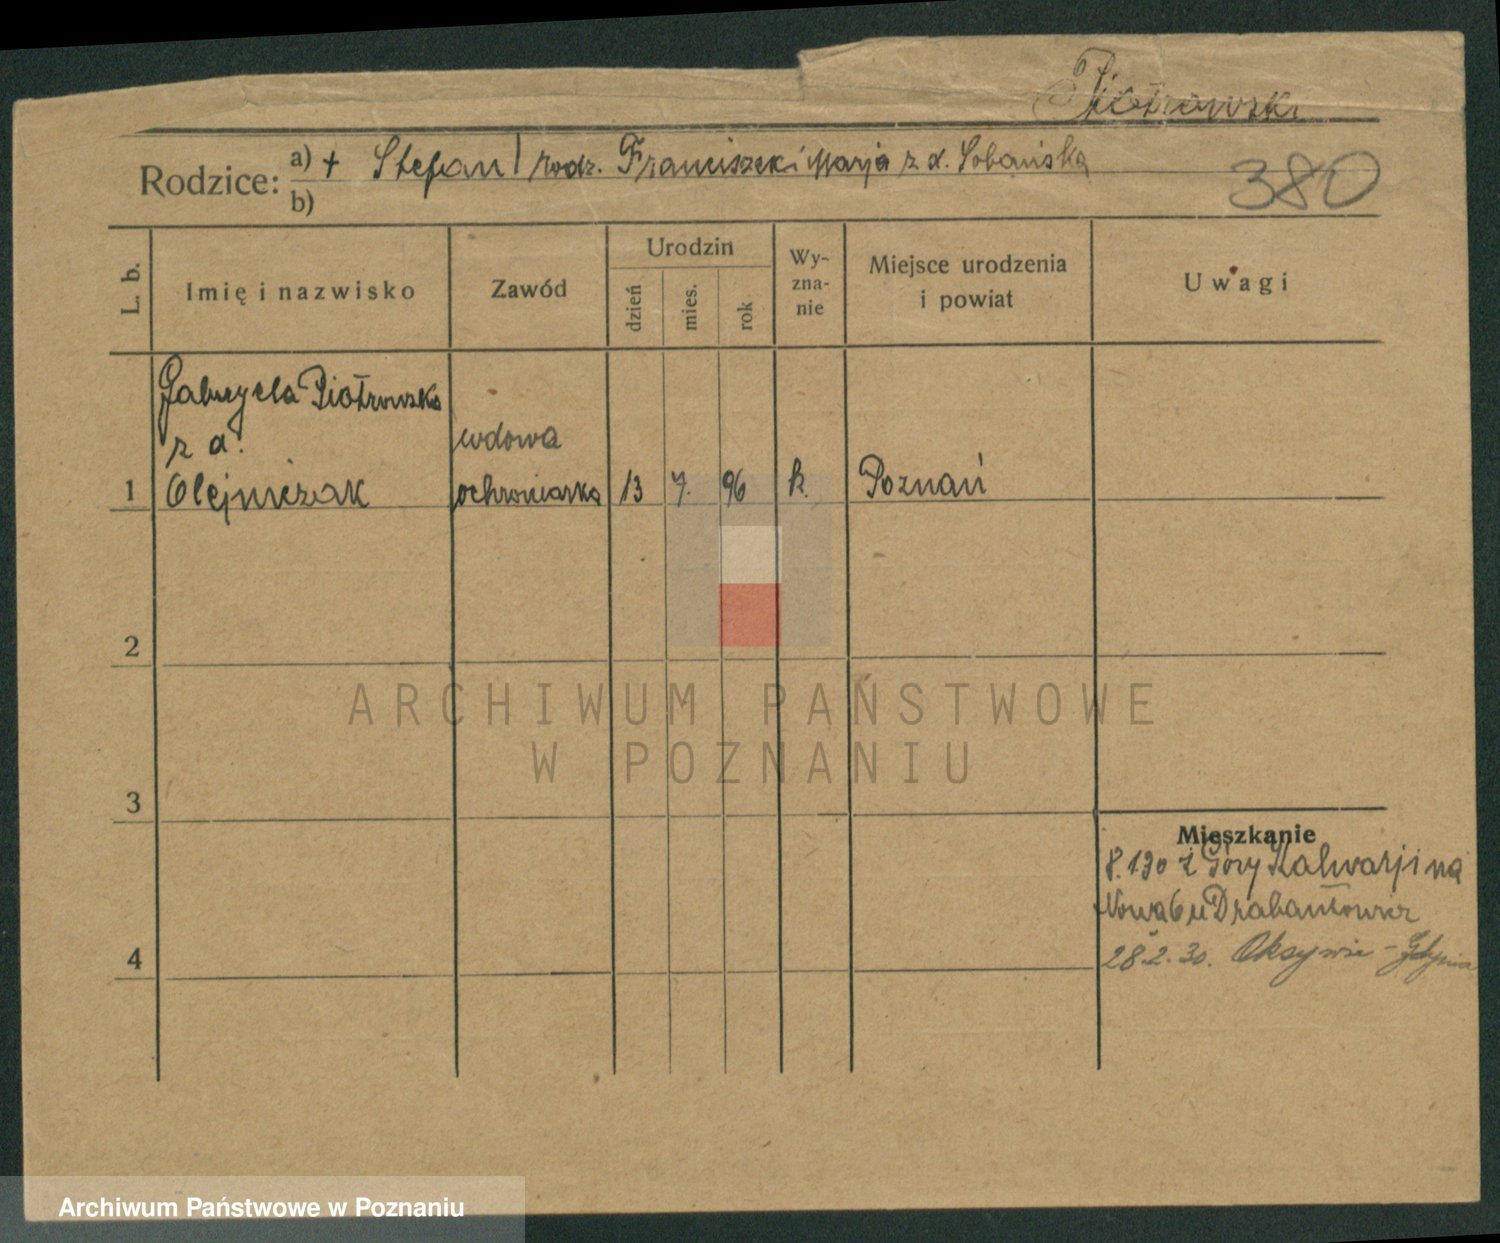 Piotrowski
Rodzice: a) + Stefan / rodz. Franciszek i Marja z d. Sobańska
b)
380
L. b.
Imię i nazwisko
Zawód
Urodzin
dzień
mies.
rok
Wy-
zna-
nie
Miejsce urodzenia
i powiat
Uwagi
Gabryela Piotrowska
z d.
wdowa
1 Olejniczak ochroniarka 13 7. 96 k. Poznań
2
3
4
Mieszkanie
8.1 30 z Góry Kalwarji na
Nowa 6 u Drabantowicz
28.2.30. Oksywie - Gdynia
ARCHIWUM PAŃSTWOWE
W POZNANIU
Archiwum Państwowe w Poznaniu